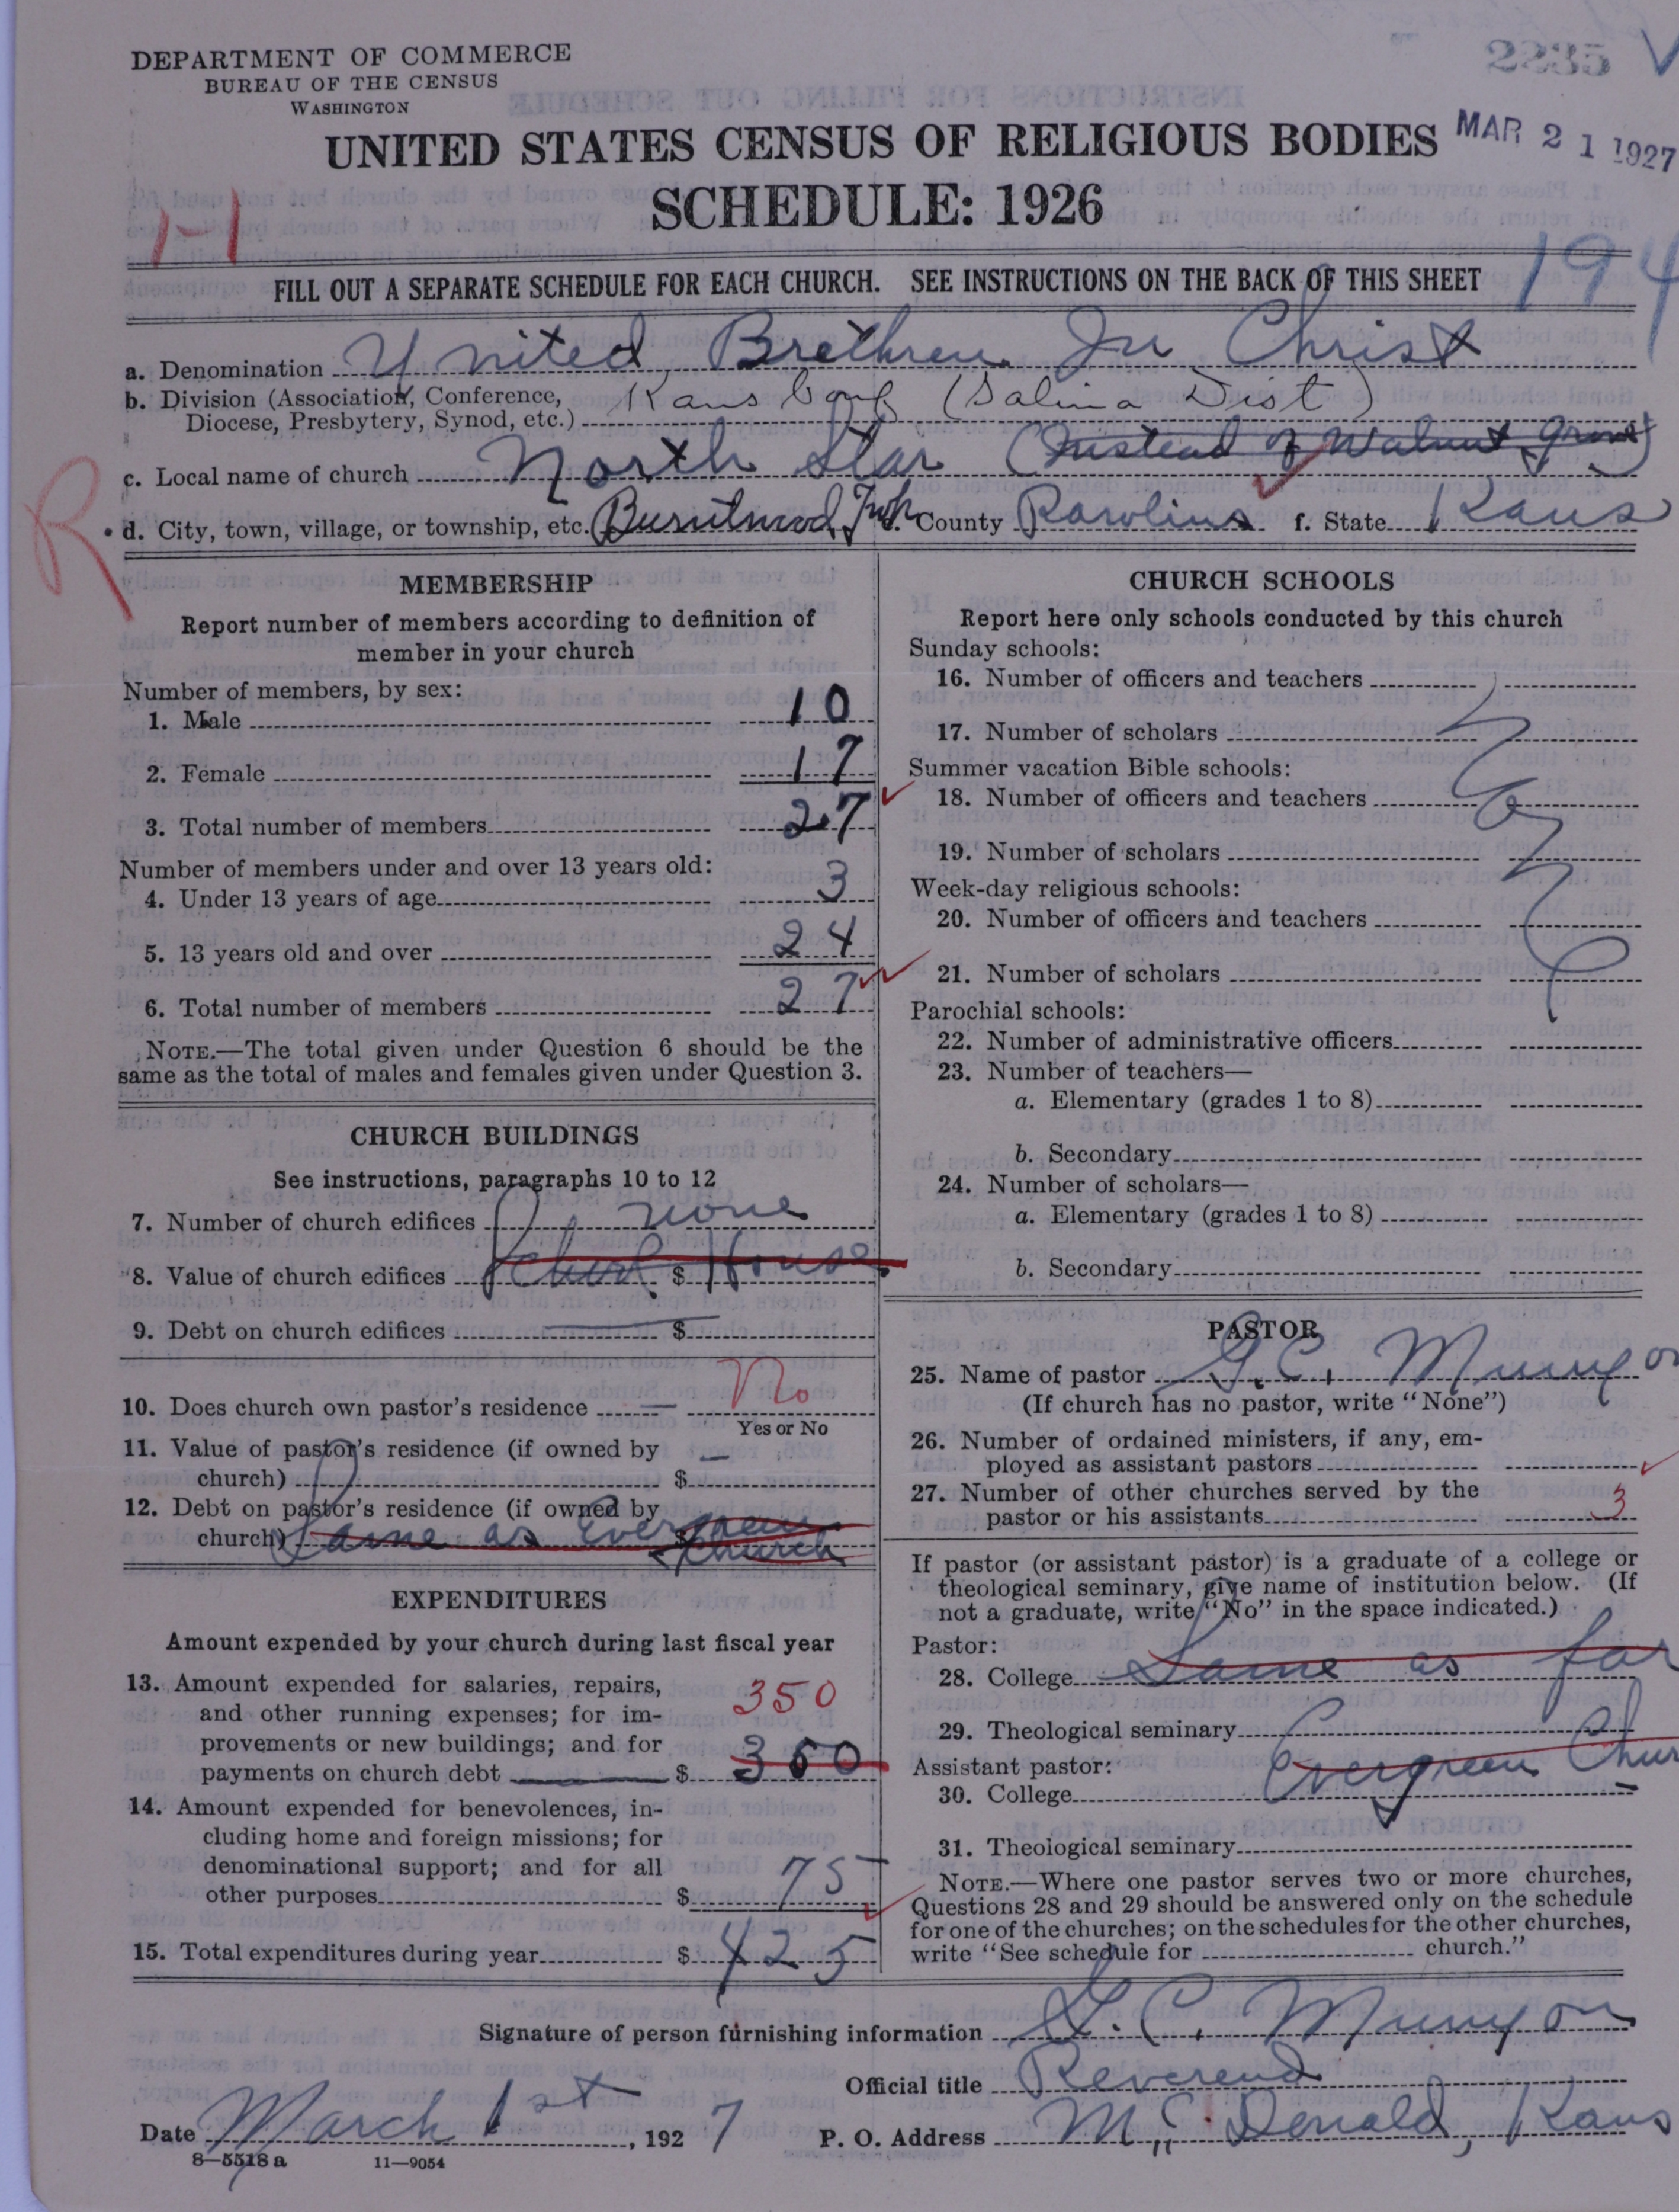 2235
DEPARTMENT OF COMMERCE
BUREAU OF THE CENSUS
WASHINGTON
MAR 21 1927
UNITED STATES CENSUS OF RELIGIOUS BODIES
SCHEDULE: 1926
1-1
194
FILL OUT A SEPARATE SCHEDULE FOR EACH CHURCH. SEE INSTRUCTIONS ON THE BACK OF THIS SHEET
a. Denomination United Brethren In Christ
b. Division (Association, Conference, Diocese, Presbytery, Synod, etc.) Kans Conf (Salina Dist)
c. Local name of church North Star (Instead of Walnut Grove)
R
d. City, town, village, or township, etc. Twp. County Rawlins f. State Kans
MEMBERSHIP
Report number of members according to definition of
member in your church
Number of members, by sex:
1. Male 10
2. Female 17
3. Total number of members 27
Number of members under and over 13 years old:
4. Under 13 years of age 3
5. 13 years old and over 24
6. Total number of members 27
NOTE.—The total given under Question 6 should be the
same as the total of males and females given under Question 3.
CHURCH BUILDINGS
See instructions, paragraphs 10 to 12
7. Number of church edifices none
8. Value of church edifices $ House
9. Debt on church edifices $
10. Does church own pastor's residence — No
Yes or No
11. Value of pastor's residence (if owned by
church) $ —
12. Debt on pastor's residence (if owned by
church) $ Same as Evergreen
Church
EXPENDITURES
Amount expended by your church during last fiscal year
13. Amount expended for salaries, repairs,
and other running expenses; for im-
350
provements or new buildings; and for
payments on church debt $ 350
14. Amount expended for benevolences, in-
cluding home and foreign missions; for
denominational support; and for all
other purposes $ 75
15. Total expenditures during year $ 425
CHURCH SCHOOLS
Report here only schools conducted by this church
Sunday schools:
16. Number of officers and teachers
17. Number of scholars
Summer vacation Bible schools:
18. Number of officers and teachers
19. Number of scholars
Week-day religious schools:
20. Number of officers and teachers
21. Number of scholars
Parochial schools:
22. Number of administrative officers
23. Number of teachers—
a. Elementary (grades 1 to 8)
b. Secondary
24. Number of scholars—
a. Elementary (grades 1 to 8)
b. Secondary
PASTOR
25. Name of pastor G. C. Munyon
(If church has no pastor, write "None")
26. Number of ordained ministers, if any, em-
ployed as assistant pastors
27. Number of other churches served by the
pastor or his assistants 3
If pastor (or assistant pastor) is a graduate of a college or
theological seminary, give name of institution below. (If
not a graduate, write "No" in the space indicated.)
Pastor:
28. College Same as for
29. Theological seminary
Assistant pastor: Evergreen Chur
30. College
31. Theological seminary
NOTE.—Where one pastor serves two or more churches,
Questions 28 and 29 should be answered only on the schedule
for one of the churches; on the schedules for the other churches,
write "See schedule for church."
Signature of person furnishing information G. C. Munyon
Official title Reverend
Date March 1st, 1927 P. O. Address Mc Donald, Kans
8—5518a 11—9054